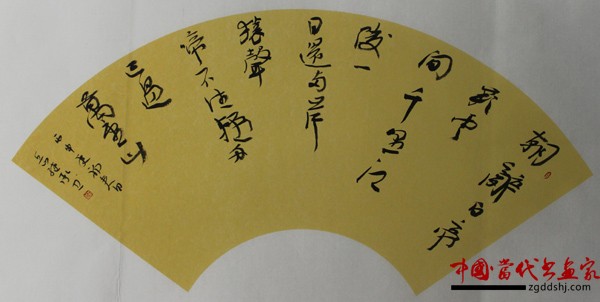 朝辭白帝
彩雲
間千里江
陵一
日還兩岸
猿聲
啼不住輕舟
已過
萬重山
丙申
中國·當代书画家
zgddshj.com